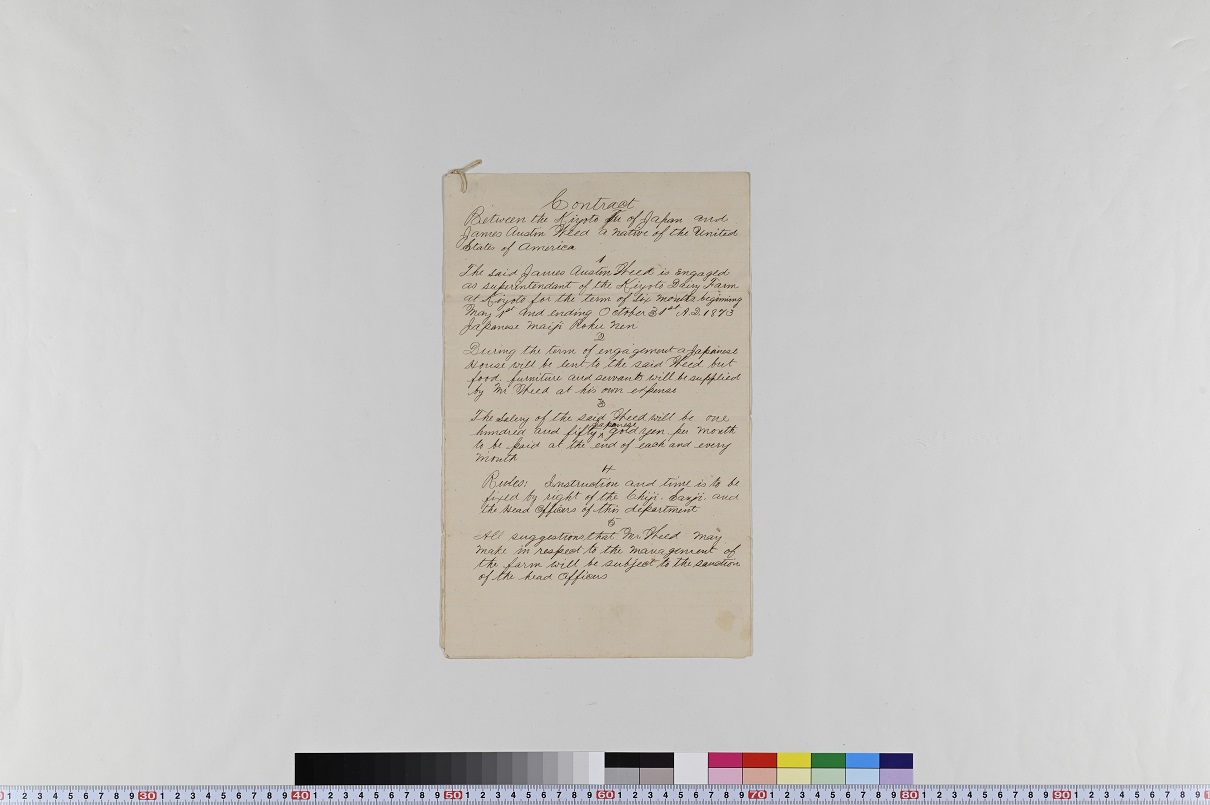 Contract
Between the Kiyoto Fu of Japan and
James Austin Weed a native of the United
States of America
1
The said James Austin Weed is engaged
as superintendant of the Kiyoto Dairy Farm
at Kiyoto for the term of Six months beginning
May 1st and ending October 31st A.D. 1873
Japanese Maiji Roku Nen
2
During the term of engagement a Japanese
House will be lent to the said Weed but
food, furniture and servants will be supplied
by Mr Weed at his own expense
3
The Salery of the said Weed will be one
hundred and fifty Japanese gold yen per month
to be paid at the end of each and every
month
4
Rules: Instruction and time is to be
fixed by right of the Chiji. Sanji. and
the Head Officers of this department
5
All suggestions that Mr Weed may
make in respect to the management of
the farm will be subject to the sanction
of the head Officers
30 1 2 3 4 5 6 7 8 9 40 1 2 3 4 5 6 7 8 9 50 1 2 3 4 5 6 7 8 9 60 1 2 3 4 5 6 7 8 9 70 1 2 3 4 5 6 7 8 9 80 1 2 3 4 5 6 7 8 9 90 1 2 3 4 5 6 7 8 9